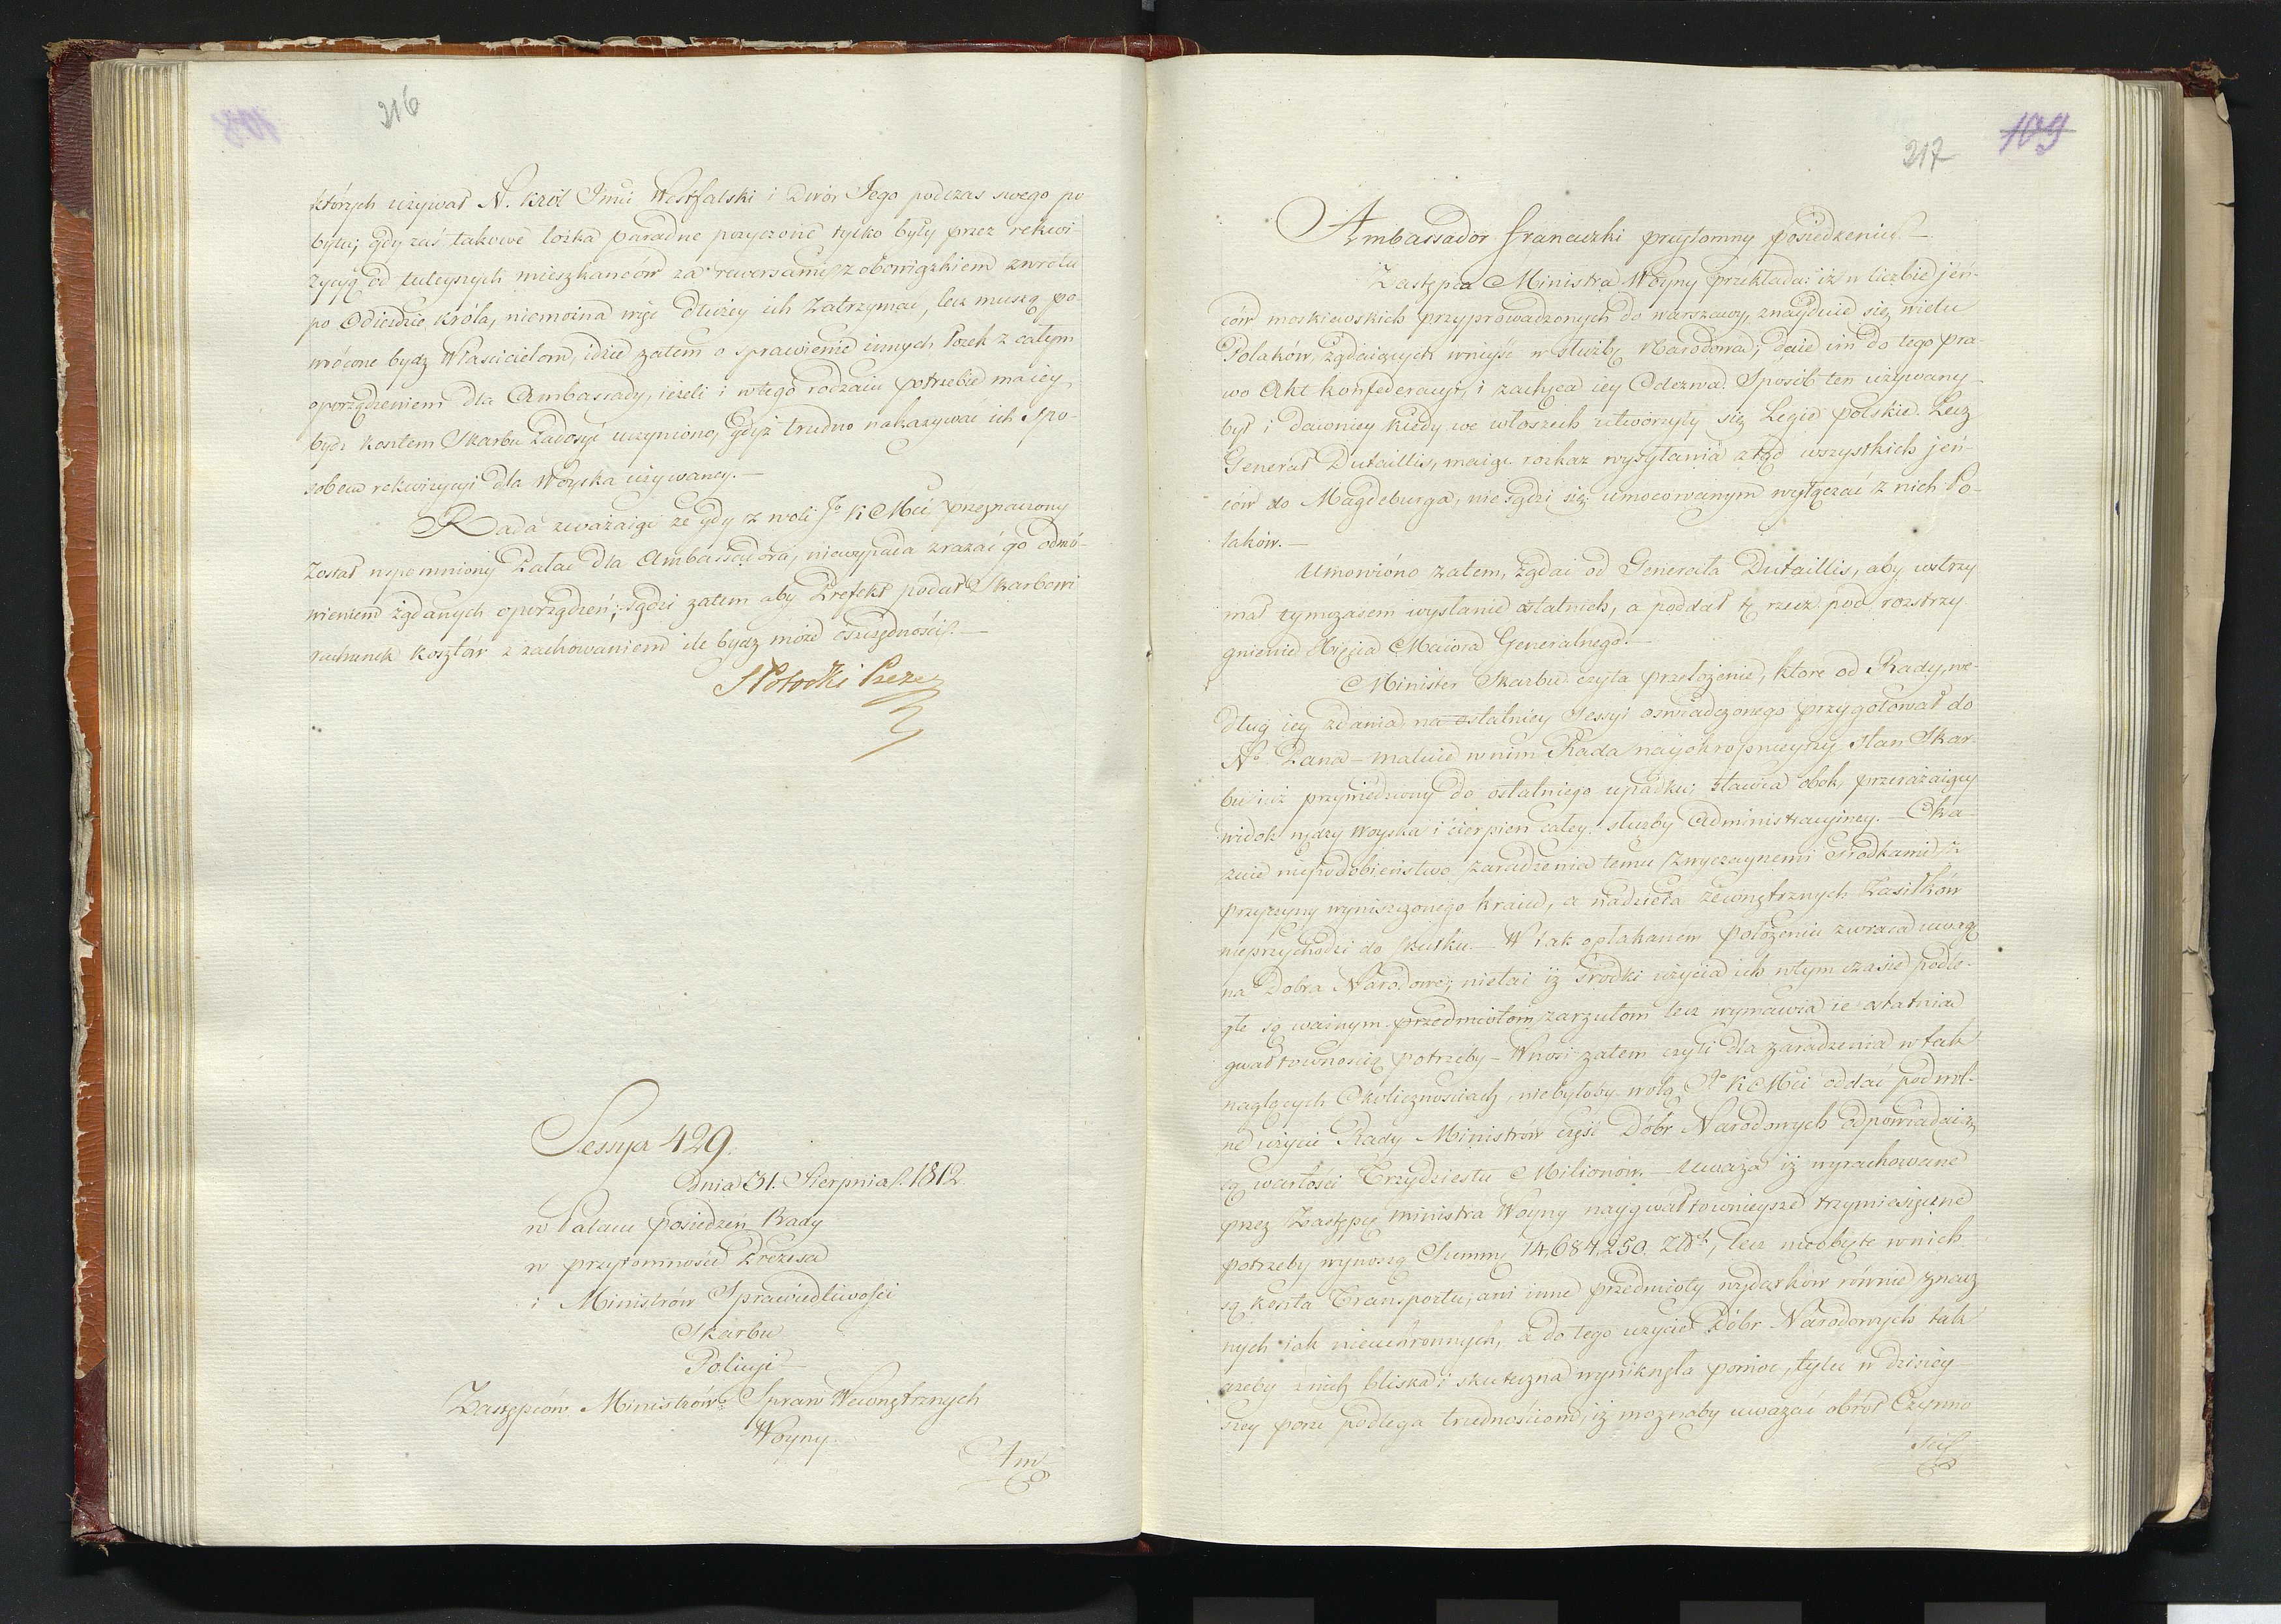 216
których używał N. Król Jmći Westfalski i Dwór Jego podczas swego po
bytu; gdy zaś takowe łożka paradne pożyczone tylko były przez rekwi-
zycyą od tuteyszych mieszkańców za rewersami z obowiązkiem zwrotu
po odieździe króla, niemożna więc dłużey ich zatrzymać, lecz muszą po-
wrócone bydź Właścicielom, idzie zatem o sprawienie innych łożek z całym
oporządzeniem dla Ambassady, ieżeli i w tego rodzaiu potrzebie ma iey
bydź kosztem Skarbu zadosyć uczyniono, gdyż trudno nakazywać ich spo-
sobem rekwizycyi dla Woyska używaney.—
Rada zważaiąc że gdy z woli Jo K Mci przeznaczony
został wspomniony Pałac dla Ambassadora, niewypada zrażać go odmó-
wieniem żądanych oporządzeń; sądzi zatem aby Prefekt podał Skarbowi
rachunek kosztów z zachowaniem ile bydź może oszczędności.—
SPotocki Prezes
Sessya 429.
Dnia 31. Sierpnia 1812.
w Pałacu posiedzeń Rady
w przytomności Prezesa
i Ministrów Sprawiedliwości
Skarbu
Policyi
Zastępców Ministrów: Spraw Wewnętrznych
Woyny
Am
109
217
Ambassador francuzki przytomny posiedzeniu.—
Zastępca Ministra Woyny przekłada: iż w liczbie jeń-
ców moskiewskich przyprowadzonych do warszawy, znayduie się wielu
Polaków, żądaiących wniyść w służbę Narodową; daie im do tego pra-
wo Akt konfederacyi, i zachęca iey Odezwa. Sposób ten używany
był i dawniey kiedy we włoszech utworzyły się Legie polskie. Lecz
Generał Dutaillis, maiąc rozkaz wysyłania ztąd wszystkich jeń-
ców do Magdeburga, nie sądzi się umocowanym wyłączać z nich Po-
laków.—
Umowióno zatem, żądać od Generała Dutaillis, aby wstrzy
mał tymczasem wysłanie ostatnich, a poddał tę rzecz pod rozstrzy
gnienie Xięcia Maiora Generalnego.—
Minister Skarbu czyta przełożenie, które od Rady, we-
dług iey zdania, na ostatniey Sessyi oświadczonego przygotował do
No Pana — maluie w nim Rada nayokropnieyszy stan Skar-
bu iuż przywiedziony do ostatniego upadku; stawia obok przerażaiący
widok nędzy woyska i cierpień całey służby Administracyiney.— Oka-
zuie niepodobieństwo zaradzenia temu zwyczaynemi środkami z
przyczyny wyniszczonego kraiu, a nadzieia zewnętrznych zasiłków
nieprzychodzi do skutku.— W tak opłakanem położeniu zwraca uwagę
na Dobra Narodowe; nietai iż środki użycia ich w tym czasie podle-
głe są ważnym przedmiotom zarzutom lecz wymawia ie ostatnia
gwałtownością potrzeby — Wnosi zatem czyli dla zaradzenia w tak
naglących okolicznościach, niebyłoby wolą No K Mci oddać pod wol-
ne użycie Rady Ministrów część Dóbr Narodowych odpowiadaią-
cą wartości Trzydziestu Milionów.— Uważa iż wyrachowane
przez Zastępcę ministra Woyny naygwałtownieysze trzymiesięczne
potrzeby wynoszą Summę 14,684,250. Złot, lecz nieobjęte w nich
są koszta Transportu, ani inne przedmioty wydatków równie znacz
nych iak nieuchronnych, a do tego użycie Dóbr Narodowych tak
ażeby z nich bliska i skuteczna wyniknęła pomoc, tylu w dzisiey
szey porze podlega trudnościom, iż możnaby uważać obrót Czynno
ści